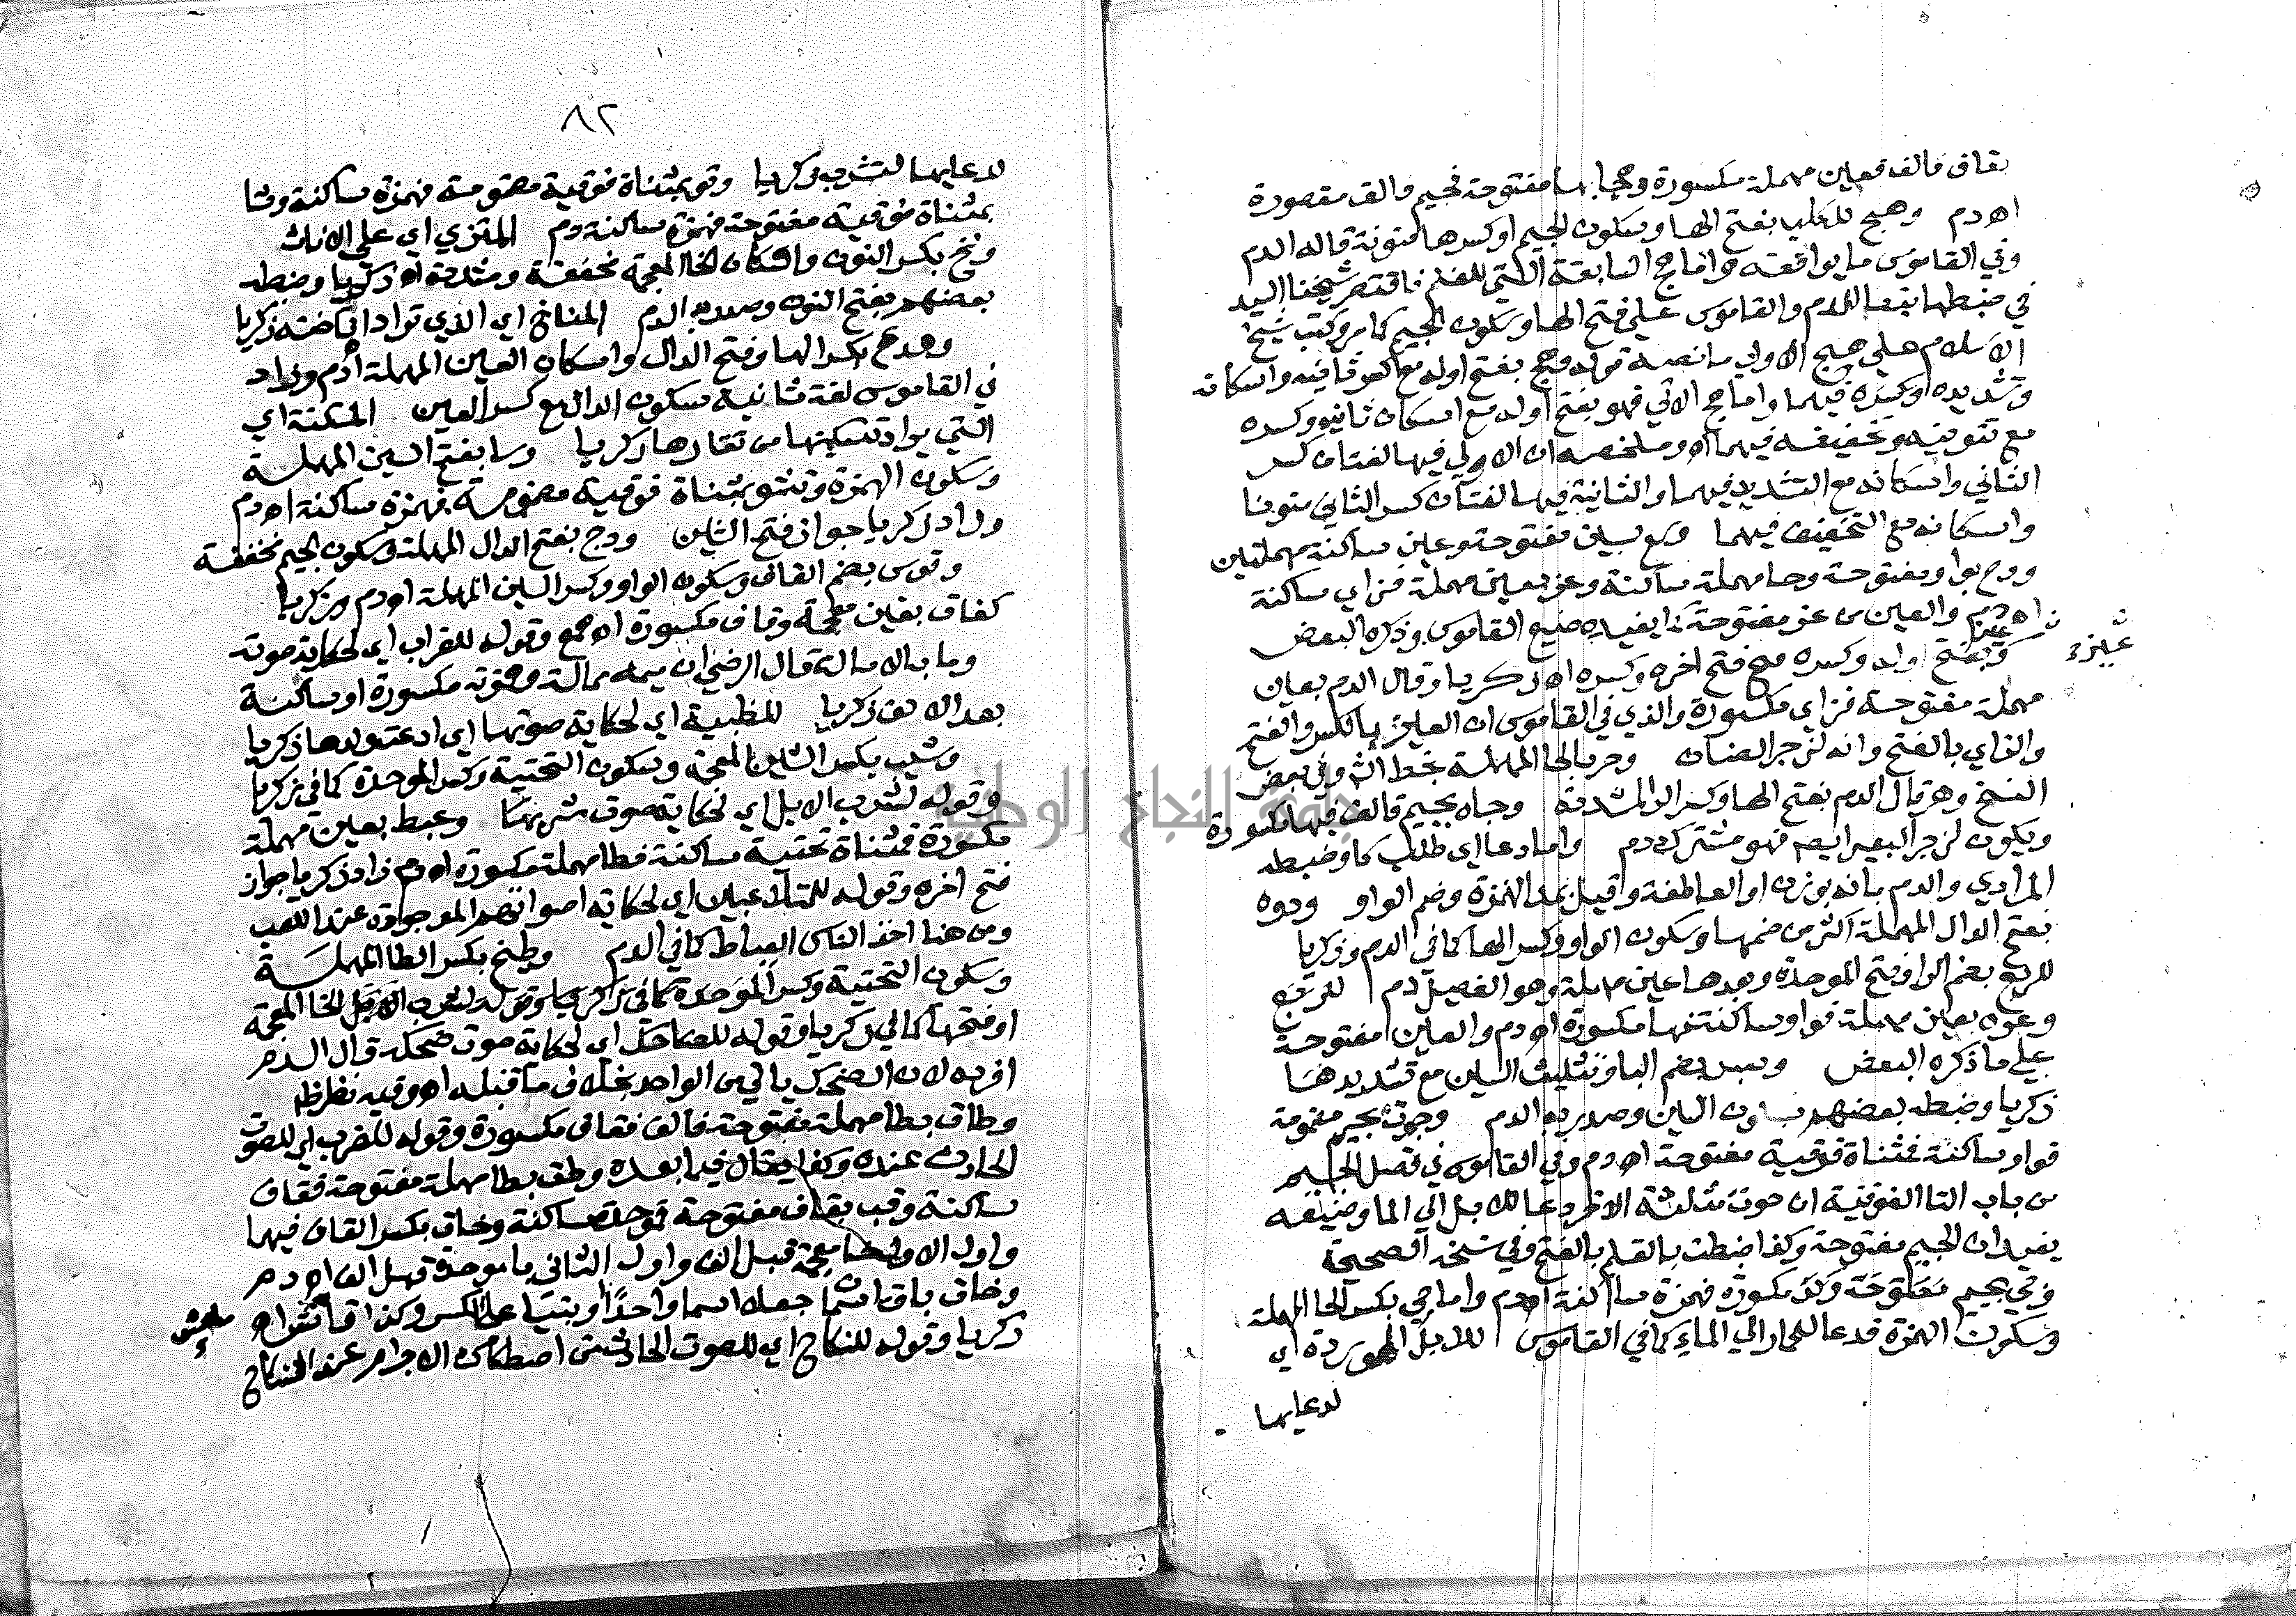 بقاف فالف فعين مهملة مكسورة وهجا بها مفتوحة فجيم فالف مقصورة
اه دم وهج للكلب بفتح الها وسكون الجيم او كسرها منونة قاله الدم
وفي القاموس ما يوافقه واما هج السابقة التي للغنم فاقتصر شيخنا السيد
في ضبطها تبعا للدم والقاموس على فتح الها وسكون الجيم كما مر وكتب شيخ
الاسلام على هج الاولي ما نصه قوله وهج بفتح اوله مع كسر ثانيه واسكانه
وتشديده او كسره فيهما واما هج الاتي فهو بفتح اوله مع اسكان ثانيه وكسره
مع تنوينه وتخفيفه فيهما اه وملخصه ان الاولي فيها لغتان كسر
الثاني واسكانه مع التشديد فيهما والثانية فيها لغتان كسر الثاني منونا
واسكانه مع التخفيف فيهما وسع بسين مفتوحة وعين ساكنة مهملتين
ووح بواو مفتوحة وحا مهملة ساكنة وعز بعين مهملة فزاي ساكنة
اه دم والعين من عز مفتوحة كما يفيده صنيع القاموس وذكره البعض
وعيز بفتح اوله وكسره مع فتح اخره وكسره اه زكريا وقال الدم بعين
مهملة مفتوحة فزاي مكسورة والذي في القاموس ان العيز بالكسر والفتح
والزاي بالفتح وانه لزجر الضان وحر بالحا المهملة بخط الش وفي بعض
النسخ وهر قال الدم بفتح الها وكسر الرا المشددة وجاه بجيم فالف فها مكسورة
ويكون لزجر البعير ايضا فهو مشترك دم واما دعا اي طلب كاو ضبطه
المرادي والدم بانه بوزن او العاطفة وقيل بمد الهمزة وضم الواو ودوه
بفتح الدال المهملة اكثر من ضمها وسكون الواو وكسر الها كما في الدم وزكريا
للربع بضم الرا وفتح الموحدة وبعدها عين مهملة وهو الفصيل دم
وعوه بعين مهملة فواو ساكنة فها مكسورة اه دم والعين مفتوحة
علي ما ذكره البعض وبس بضم البا وتثليث السين مع تشديدها
زكريا وضبطه بعضهم بسكون السين وصدر به الدم وجوت بجيم مضمومة
فواو ساكنة فمثناة فوقية مفتوحة اه دم وفي القاموس في فصل الجيم
من باب التا الفوقية ان جوت مثلثة الاخر دعا للابل الي الما وصنيعه
يفيد ان الجيم مفتوحة وكذا ضبطت بالقلم بالفتح وفي نسخه الصحيحة
وجي بجيم مكسورة فهمزة ساكنة اه دم واما حي بكسر الحا المهملة
وسكون الهمزة فدعا للحمار الي الماء كما في القاموس للابل الموردة اي
لدعايها
٨٢
لدعايها لتشرب زكريا وتؤ بمثناة فوقية مضمومة فهمزة ساكنة وتا
بمثناة فوقية مفتوحة فهمزة ساكنة دم المنزي اي على الاناث
ونخ بكسر النون واسكان الخا المعجمة مخففة ومشددة اه زكريا وضبطه
بعضهم بفتح النون وصدر به الدم المناخ اي الذي تراد اناخته زكريا
وهدع بكسر الها وفتح الدال واسكان العين المهملة اه دم وزاد
في القاموس لغة ثانية سكون الدال مع كسر العين المسكنة اي
التي يراد تسكينها من نفارها زكريا وسا بفتح السين المهملة
وسكون الهمزة وتشؤ بمثناة فوقية مضمومة فهمزة ساكنة اه دم
وزاد زكريا جواز فتح الشين ودج بفتح الدال المهملة وسكون الجيم مخففة
وقوس بضم القاف وسكون الواو وكسر السين المهملة اه دم وزكريا
كغاق بغين معجمة وقاف مكسورة اه همع وقوله للغراب اي لحكاية صوته
وما بالامالة قال الرضي ان ميمه ممالة وهمزته مكسورة او ساكنة
بعد الالف زكريا للظبية اي لحكاية صوتها اي اذ دعت ولدها زكريا
وشيب بكسر الشين المعجمة وسكون التحتية وكسر الموحدة كما في زكريا
وقوله لشرب الابل اي لحكاية صوت شربها وعيط بعين مهملة
مكسورة فمثناة تحتية ساكنة فطا مهملة مكسورة اه دم زاد زكريا جواز
فتح اخره وقوله للمتلاعبين اي لحكاية اصواتهم الموجودة عند اللعب
ومن هنا اخذ الناس العياط كما في الدم وطيخ بكسر الطا المهملة
وسكون التحتية وكسر الخا المعجمة
او فتحها كما في زكريا وقوله للضاحك اي لحكاية صوت ضحكه قال الدم
افرده لان الضحك ياتي من الواحد بخلاف ما قبله اه وفيه نظر ظ
وطاق بطا مهملة مفتوحة فالف فقاف مكسورة وقوله للضرب اي للصوت
الحادث عنده وكذا يقال فيما بعده وطق بطا مهملة مفتوحة فقاف
ساكنة وقب بقاف مفتوحة فموحدة ساكنة وخاق بكسر القاف فيهما
واول الاولي خا معجمة قبل الف واول الثاني با موحدة قبل الف اه دم
وخاق باق اسما جعلا اسما واحدا وبنيا على الكسر وكذا قاش ماش اه
زكريا وقوله للنكاح اي للصوت الحادث من اصطكاك الاجرام عند النكاح
جامعة النجاح الوطنية